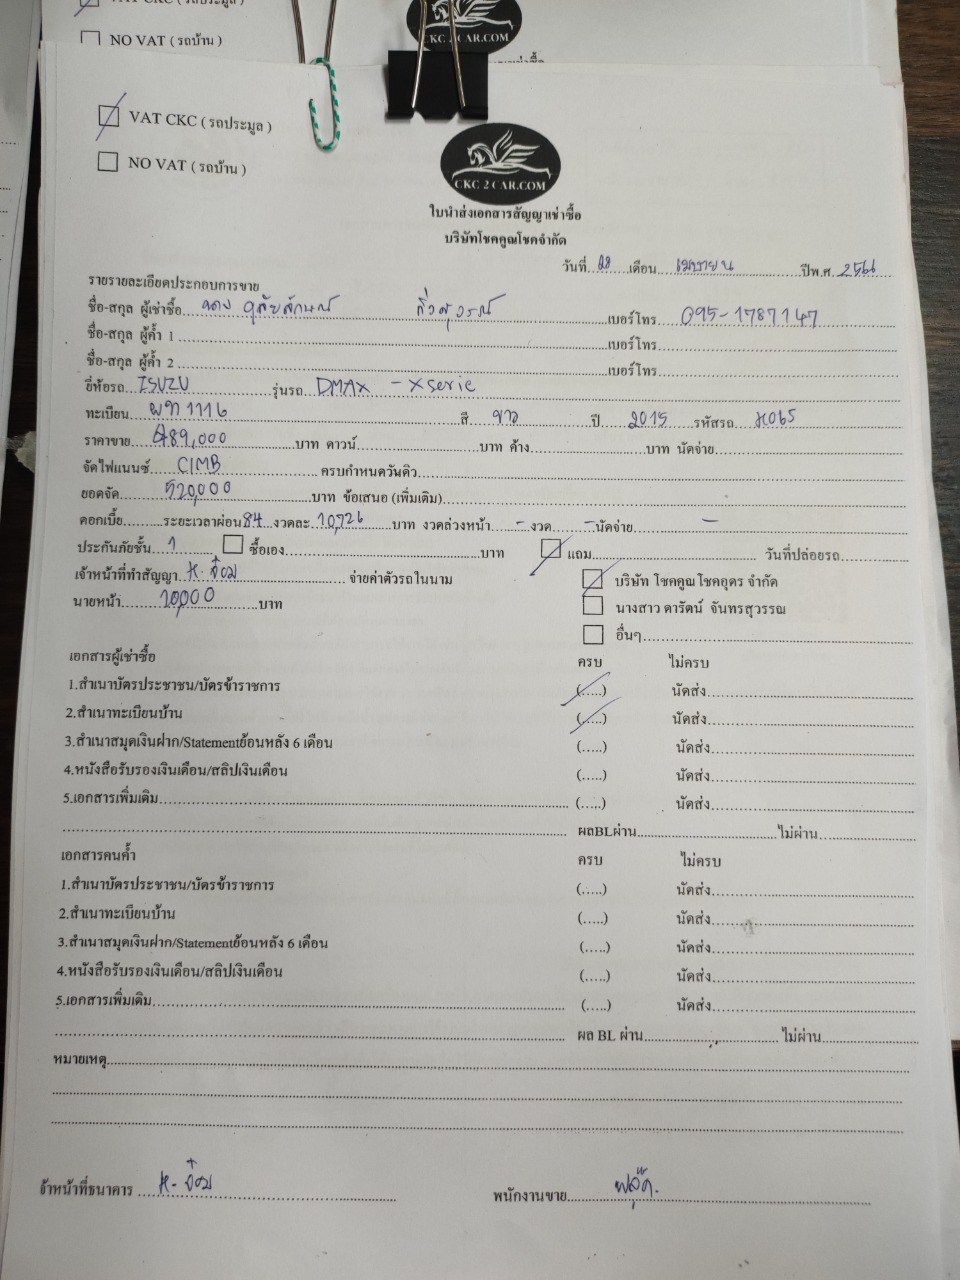 VAT CKC ( รถประมูล )
NO VAT ( รถบ้าน )
CKC 2 CAR.COM
VAT CKC ( รถประมูล )
NO VAT ( รถบ้าน )
CKC 2 CAR.COM
ใบนำส่งเอกสารสัญญาเช่าซื้อ
บริษัทโชคคูณโชคจำกัด
วันที่ 22 เดือน เมษายน ปีพ.ศ. 2566
รายรายละเอียดประกอบการขาย
ชื่อ-สกุล ผู้เช่าซื้อ นาง อุลัยลักษณ์ เบอร์โทร. 095-1787147
ชื่อ-สกุล ผู้ค้ำ 1 เบอร์โทร
ชื่อ-สกุล ผู้ค้ำ 2 เบอร์โทร
ยี่ห้อรถ ISUZU รุ่นรถ DMAX - X serie
ทะเบียน ผท 1116 สี ขาว ปี 2015 รหัสรถ H065
ราคาขาย 489,000 บาท ดาวน์ บาท ค้าง บาท นัดจ่าย
จัดไฟแนนซ์ CIMB ครบกำหนดวันคิว
ยอดจัด 520,000 บาท ข้อเสนอ (เพิ่มเติม)
ดอกเบี้ย ระยะเวลาผ่อน 84 งวดละ 10,726 บาท งวดล่วงหน้า - งวด - นัดจ่าย -
ประกันภัยชั้น 1 ซื้อเอง บาท แถม วันที่ปล่อยรถ
เจ้าหน้าที่ทำสัญญา K. อ๋อม จ่ายค่าตัวรถในนาม บริษัท โชคคูณโชคอุดร จำกัด
นายหน้า 10,000 บาท นางสาว ดารัตน์ จันทรสุวรรณ
อื่นๆ
เอกสารผู้เช่าซื้อ ครบ ไม่ครบ
1.สำเนาบัตรประชาชน/บัตรข้าราชการ (.....) นัดส่ง
2.สำเนาทะเบียนบ้าน (.....) นัดส่ง
3.สำเนาสมุดเงินฝาก/Statementย้อนหลัง 6 เดือน (.....) นัดส่ง
4.หนังสือรับรองเงินเดือน/สลิปเงินเดือน (.....) นัดส่ง
5.เอกสารเพิ่มเติม (.....) นัดส่ง
ผลBLผ่าน ไม่ผ่าน
เอกสารคนค้ำ ครบ ไม่ครบ
1.สำเนาบัตรประชาชน/บัตรข้าราชการ (.....) นัดส่ง
2.สำเนาทะเบียนบ้าน (.....) นัดส่ง
3.สำเนาสมุดเงินฝาก/Statementย้อนหลัง 6 เดือน (.....) นัดส่ง
4.หนังสือรับรองเงินเดือน/สลิปเงินเดือน (.....) นัดส่ง
5.เอกสารเพิ่มเติม (.....) นัดส่ง
ผล BL ผ่าน ไม่ผ่าน
หมายเหตุ
จ้าหน้าที่ธนาคาร K. อ๋อม พนักงานขาย ฟลุ๊ค.